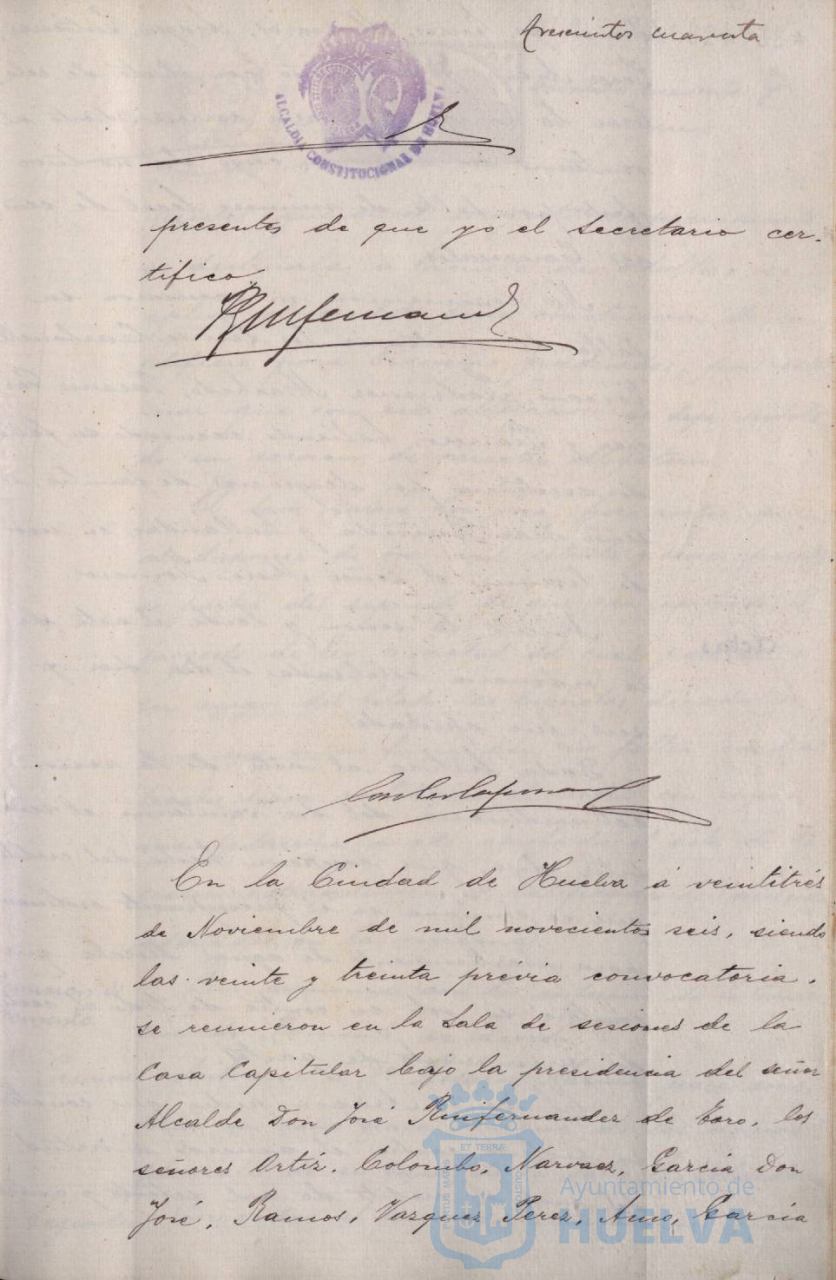 Trescientos cuarenta
ALCALDIA CONSTITUCIONAL DE HUELVA
presentes de que yo el Secretario cer-
tifico
En la Ciudad de Huelva á veintitrés
de Noviembre de mil novecientos seis, siendo
las veinte y treinta prévia convocatoria,
se reunieron en la Sala de sesiones de la
Casa Capitular bajo la presidencia del señor
Alcalde Don José Ruifernandez de Toro, los
señores Ortiz, Colombo, Narvaez, García Don
José, Ramos, Vazquez Perez, Amo, García
Ayuntamiento de
HUELVA